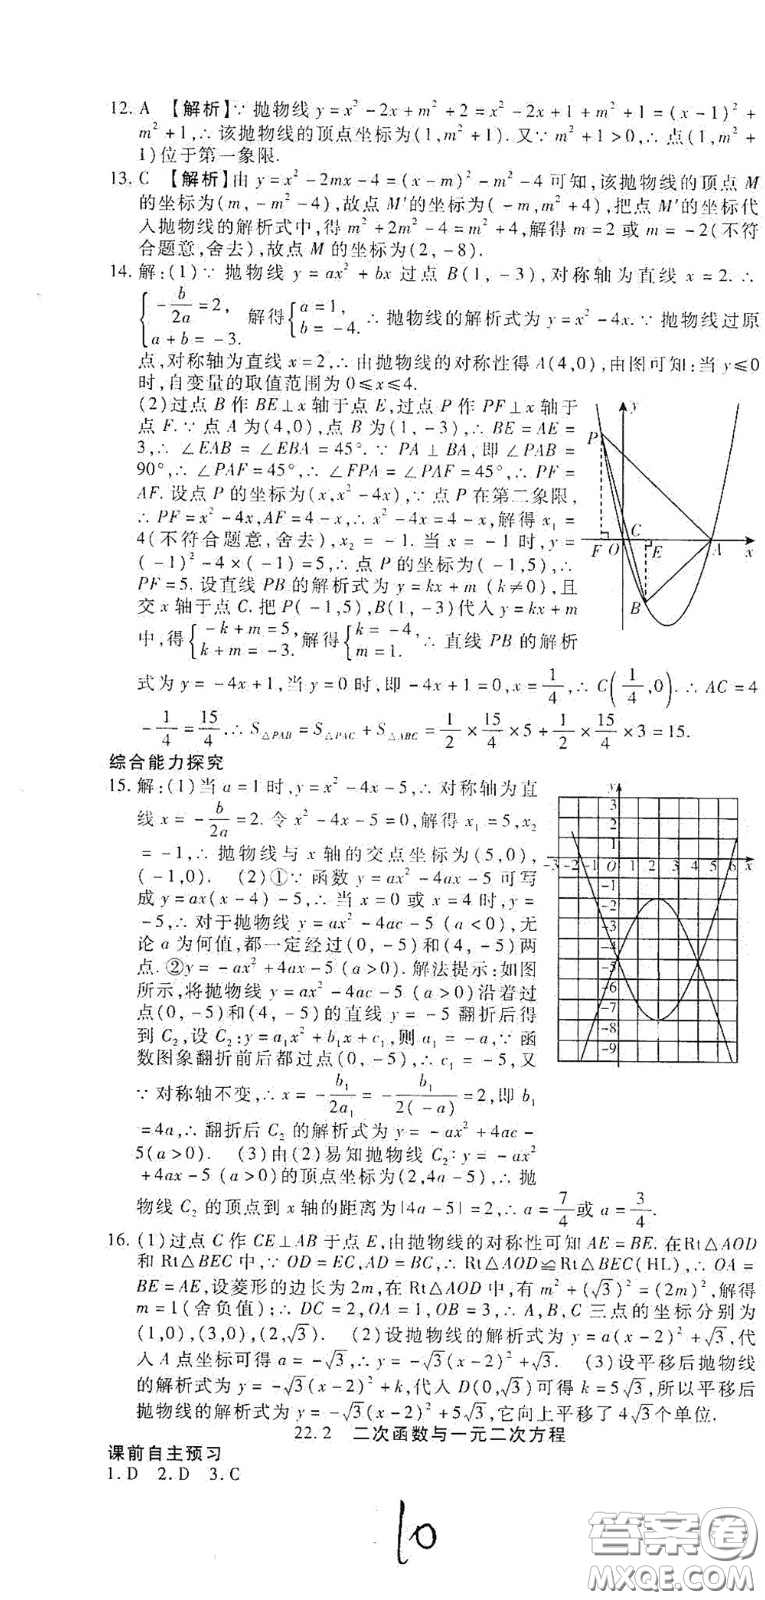 12. A 【解析】∵ 抛物线 y=x²-2x+m²+2=x²-2x+1+m²+1=(x-1)²+
m²+1,∴ 该抛物线的顶点坐标为(1,m²+1). 又∵ m²+1>0,∴ 点(1,m²+
1)位于第一象限.
13. C 【解析】由 y=x²-2mx-4=(x-m)²-m²-4 可知,该抛物线的顶点 M
的坐标为(m,-m²-4),故点 M′的坐标为(-m,m²+4),把点 M′的坐标代
入抛物线的解析式中,得 m²+2m²-4=m²+4,解得 m=2 或 m=-2(不符
合题意,舍去),故点 M 的坐标为(2,-8).
14. 解:(1)∵ 抛物线 y=ax²+bx 过点 B(1,-3),对称轴为直线 x=2. ∴
{-b/2a=2, a+b=-3. 解得{a=1, b=-4. ∴ 抛物线的解析式为 y=x²-4x. ∵ 抛物线过原
点,对称轴为直线 x=2,∴ 由抛物线的对称性得 A(4,0),由图可知:当 y≤0
时,自变量的取值范围为 0≤x≤4.
(2)过点 B 作 BE⊥x 轴于点 E,过点 P 作 PF⊥x 轴于
点 F. ∵ 点 A 为(4,0),点 B 为(1,-3),∴ BE=AE=
3,∴ ∠EAB=∠EBA=45°. ∵ PA⊥BA,即∠PAB=
90°,∴ ∠PAF=45°,∴ ∠FPA=∠PAF=45°,∴ PF=
AF. 设点 P 的坐标为(x,x²-4x),∵ 点 P 在第二象限,
∴ PF=x²-4x,AF=4-x,∴ x²-4x=4-x,解得 x₁=
4(不符合题意,舍去),x₂=-1. 当 x=-1 时,y=
(-1)²-4×(-1)=5,∴ 点 P 的坐标为(-1,5),∴
PF=5. 设直线 PB 的解析式为 y=kx+m (k≠0),且
交 x 轴于点 C. 把 P(-1,5),B(1,-3)代入 y=kx+m
中,得{-k+m=5, k+m=-3. 解得{k=-4, m=1. ∴ 直线 PB 的解析
式为 y=-4x+1,当 y=0 时,即-4x+1=0,x=1/4,∴ C(1/4,0). ∴ AC=4
-1/4=15/4,∴ S△PAB=S△PAC+S△ABC=1/2×15/4×5+1/2×15/4×3=15.
y
P
F O C E A x
B
综合能力探究
15. 解:(1)当 a=1 时,y=x²-4x-5,∴ 对称轴为直
线 x=-b/2a=2. 令 x²-4x-5=0,解得 x₁=5,x₂
=-1,∴ 抛物线与 x 轴的交点坐标为(5,0),
(-1,0). (2)①∵ 函数 y=ax²-4ax-5 可写
成 y=ax(x-4)-5,∴ 当 x=0 或 x=4 时,y=
-5,∴ 对于抛物线 y=ax²-4ac-5 (a<0),无
论 a 为何值,都一定经过(0,-5)和(4,-5)两
点. ②y=-ax²+4ax-5 (a>0). 解法提示:如图
所示,将抛物线 y=ax²-4ac-5 (a>0)沿着过
点(0,-5)和(4,-5)的直线 y=-5 翻折后得
到 C₂,设 C₂:y=a₁x²+b₁x+c₁,则 a₁=-a,∵ 函
数图象翻折前后都过点(0,-5),∴ c₁=-5,又
∵ 对称轴不变,∴ x=-b₁/2a₁=-b₁/2(-a)=2,即 b₁
=4a,∴ 翻折后 C₂ 的解析式为 y=-ax²+4ac-
5(a>0). (3)由(2)易知抛物线 C₂:y=-ax²
+4ax-5 (a>0)的顶点坐标为(2,4a-5),∴ 抛
物线 C₂ 的顶点到 x 轴的距离为|4a-5|=2,∴ a=7/4或 a=3/4.
y
3
2
1
-3 -2 -1 O 1 2 3 4 5 6 x
-1
-2
-3
-4
-5
-6
-7
-8
-9
16. (1)过点 C 作 CE⊥AB 于点 E,由抛物线的对称性可知 AE=BE. 在Rt△AOD
和 Rt△BEC 中,∵ OD=EC,AD=BC,∴ Rt△AOD≌Rt△BEC(HL),∴ OA=
BE=AE,设菱形的边长为 2m,在 Rt△AOD 中,有 m²+(√3)²=(2m)²,解得
m=1(舍负值);∴ DC=2,OA=1,OB=3,∴ A,B,C 三点的坐标分别为
(1,0),(3,0),(2,√3). (2)设抛物线的解析式为 y=a(x-2)²+√3,代
入 A 点坐标可得 a=-√3,∴ y=-√3(x-2)²+√3. (3)设平移后抛物线
的解析式为 y=-√3(x-2)²+k,代入 D(0,√3)可得 k=5√3,所以平移后
抛物线的解析式为 y=-√3(x-2)²+5√3,它向上平移了 4√3个单位.
22.2 二次函数与一元二次方程
课前自主预习
1. D 2. D 3. C
10
答案圈
MXQE.COM